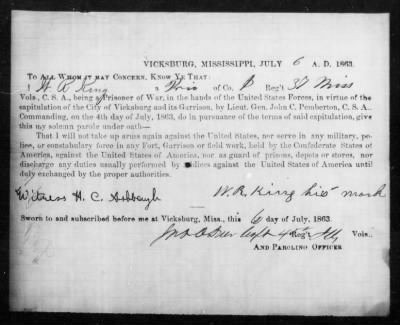 VICKSBURG, MISSISSIPPI, JULY 6 A. D. 1863.
TO ALL WHOM IT MAY CONCERN, KNOW YE THAT:
I W. R. King a Priv of Co. Reg't 37 Miss
Vols., C. S. A., being a Prisoner of War, in the hands of the United States Forces, in virtue of the
capitulation of the City of Vicksburg and its Garrison, by Lieut. Gen. John C. Pemberton, C. S. A.,
Commanding, on the 4th day of July, 1863, do in pursuance of the terms of said capitulation, give
this my solemn parole under oath—
That I will not take up arms again against the United States, nor serve in any military, pe-
lice, or constabulary force in any Fort, Garrison or field work, held by the Confederate States of
America, against the United States of America, nor as guard of prisons, depots or stores, nor
discharge any duties usually performed by soldiers against the United States of America until
duly exchanged by the proper authorities.
W. R. King his mark
Witness H. C.
Sworn to and subscribed before me at Vicksburg, Miss., this 6 day of July, 1863.
Capt Reg't Ills Vols.,
AND PAROLING OFFICER